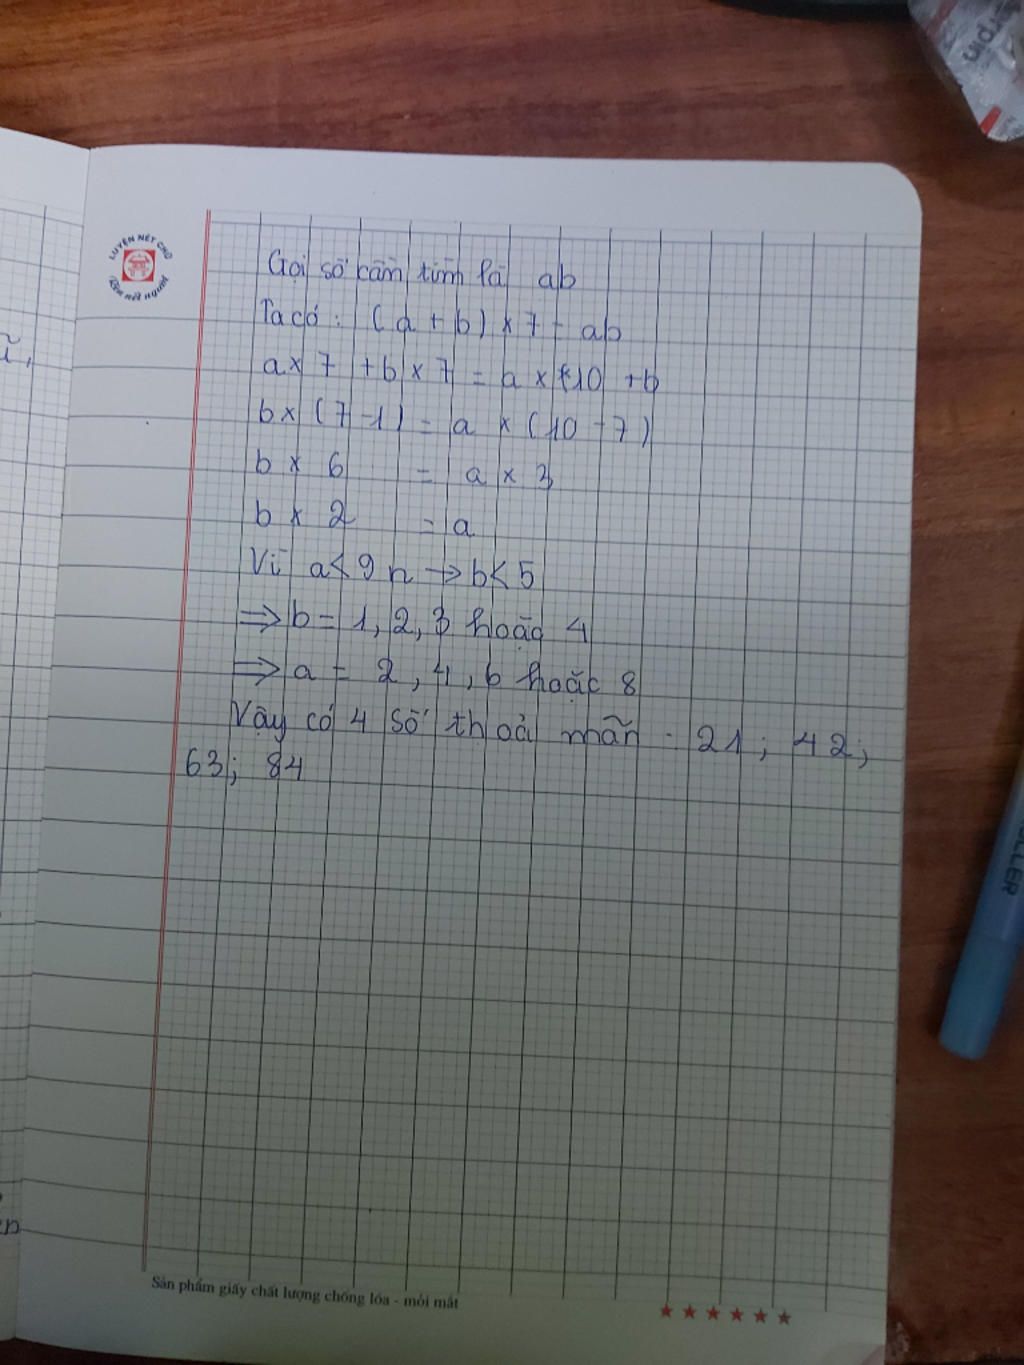 LUYỆN NÉT CHỮ
Rèn nết người
Gọi số cần tìm là ab
Ta có : (a + b) x 7 = ab
a x 7 + b x 7 = a x 10 + b
b x (7 - 1) = a x (10 - 7)
b x 6 = a x 3
b x 2 = a
Vì a < 9 n → b < 5
⇒ b = 1, 2, 3 hoặc 4
⇒ a = 2, 4, 6 hoặc 8
Vậy có 4 số thoả mãn : 21 ; 42 ;
63 ; 84
Sản phẩm giấy chất lượng chống lóa - mỏi mắt